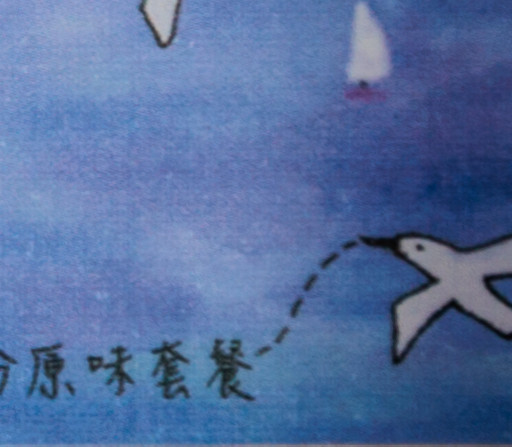 原味套餐